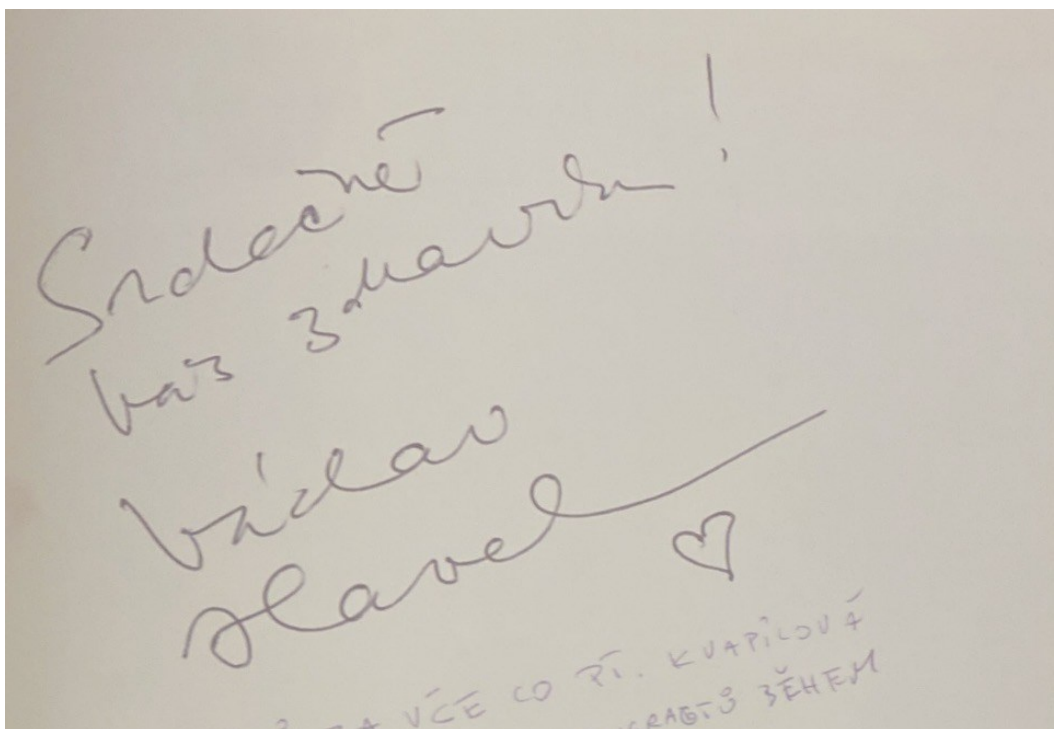 Srdečně
vás zdravím!
Václav
Havel
CO PŤ. KVAPILOVÁ
BĚHEM